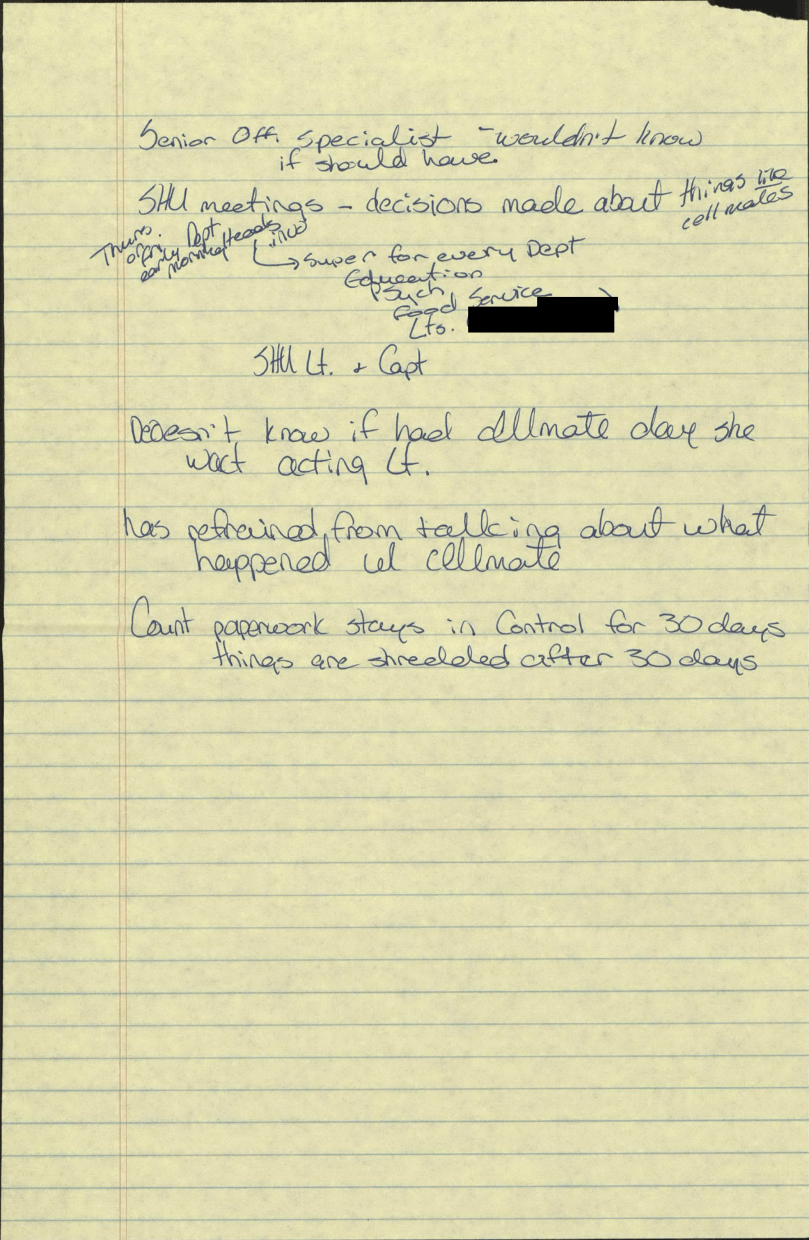 Senior Off. Specialist - wouldn't know
if should have.
SHU meetings - decisions made about things like
cell mates
Thurs.
or Fri.
early
morning
Dept
Heads
→ Super for every Dept
Education
Psych
Food Service
Lts.
SHU Lt. + Capt
Doesn't know if had cellmate day she
was acting Lt.
has refrained from talking about what
happened w/ cellmate
Count paperwork stays in Control for 30 days
things are shredded after 30 days